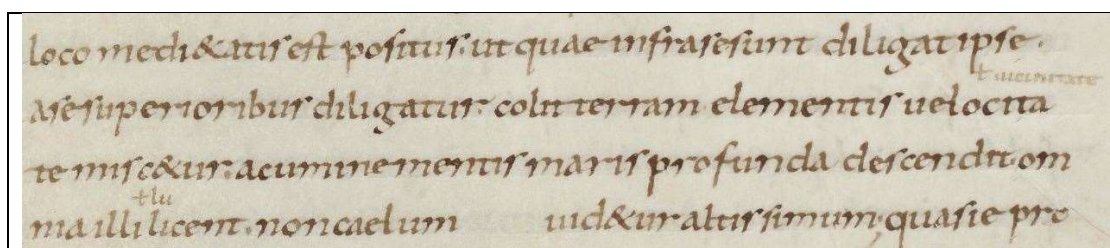 loco medi&atis est positus. ut quae infra se sunt diligat ipse.
ł uicinitate
a se superioribus diligatur. colit terram elementis uelocita
te misc&ur. acumine mentis maris profunda descendit. om
ł lu
nia illi licent. non caelum uid&ur altissimum; quasi e pro